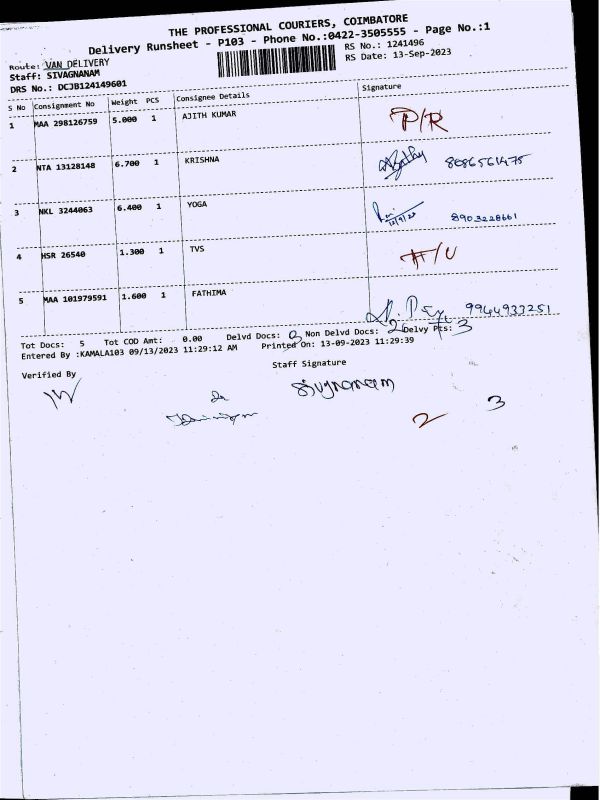 THE PROFESSIONAL COURIERS, COIMBATORE
Delivery Runsheet - P103 - Phone No.:0422-3505555 - Page No.:1
Route: VAN DELIVERY
RS No.: 1241496
Staff: SIVAGNANAM
RS Date: 13-Sep-2023
DRS No.: DCJB124149601
S No Consignment No Weight PCS Consignee Details Signature
1 MAA 298126759 5.000 1 AJITH KUMAR P/R
2 NTA 13128148 6.700 1 KRISHNA 8086561475
3 NKL 3244063 6.400 1 YOGA 8903228661
4 HSR 26540 1.300 1 TVS
5 MAA 101979591 1.600 1 FATHIMA 9944933251
Tot Docs: 5 Tot COD Amt: 0.00 Delvd Docs: 3 Non Delvd Docs: 2 Delvy Pts: 3
Entered By :KAMALA103 09/13/2023 11:29:12 AM Printed On: 13-09-2023 11:29:39
Verified By Staff Signature
Sivgnanam
2 3